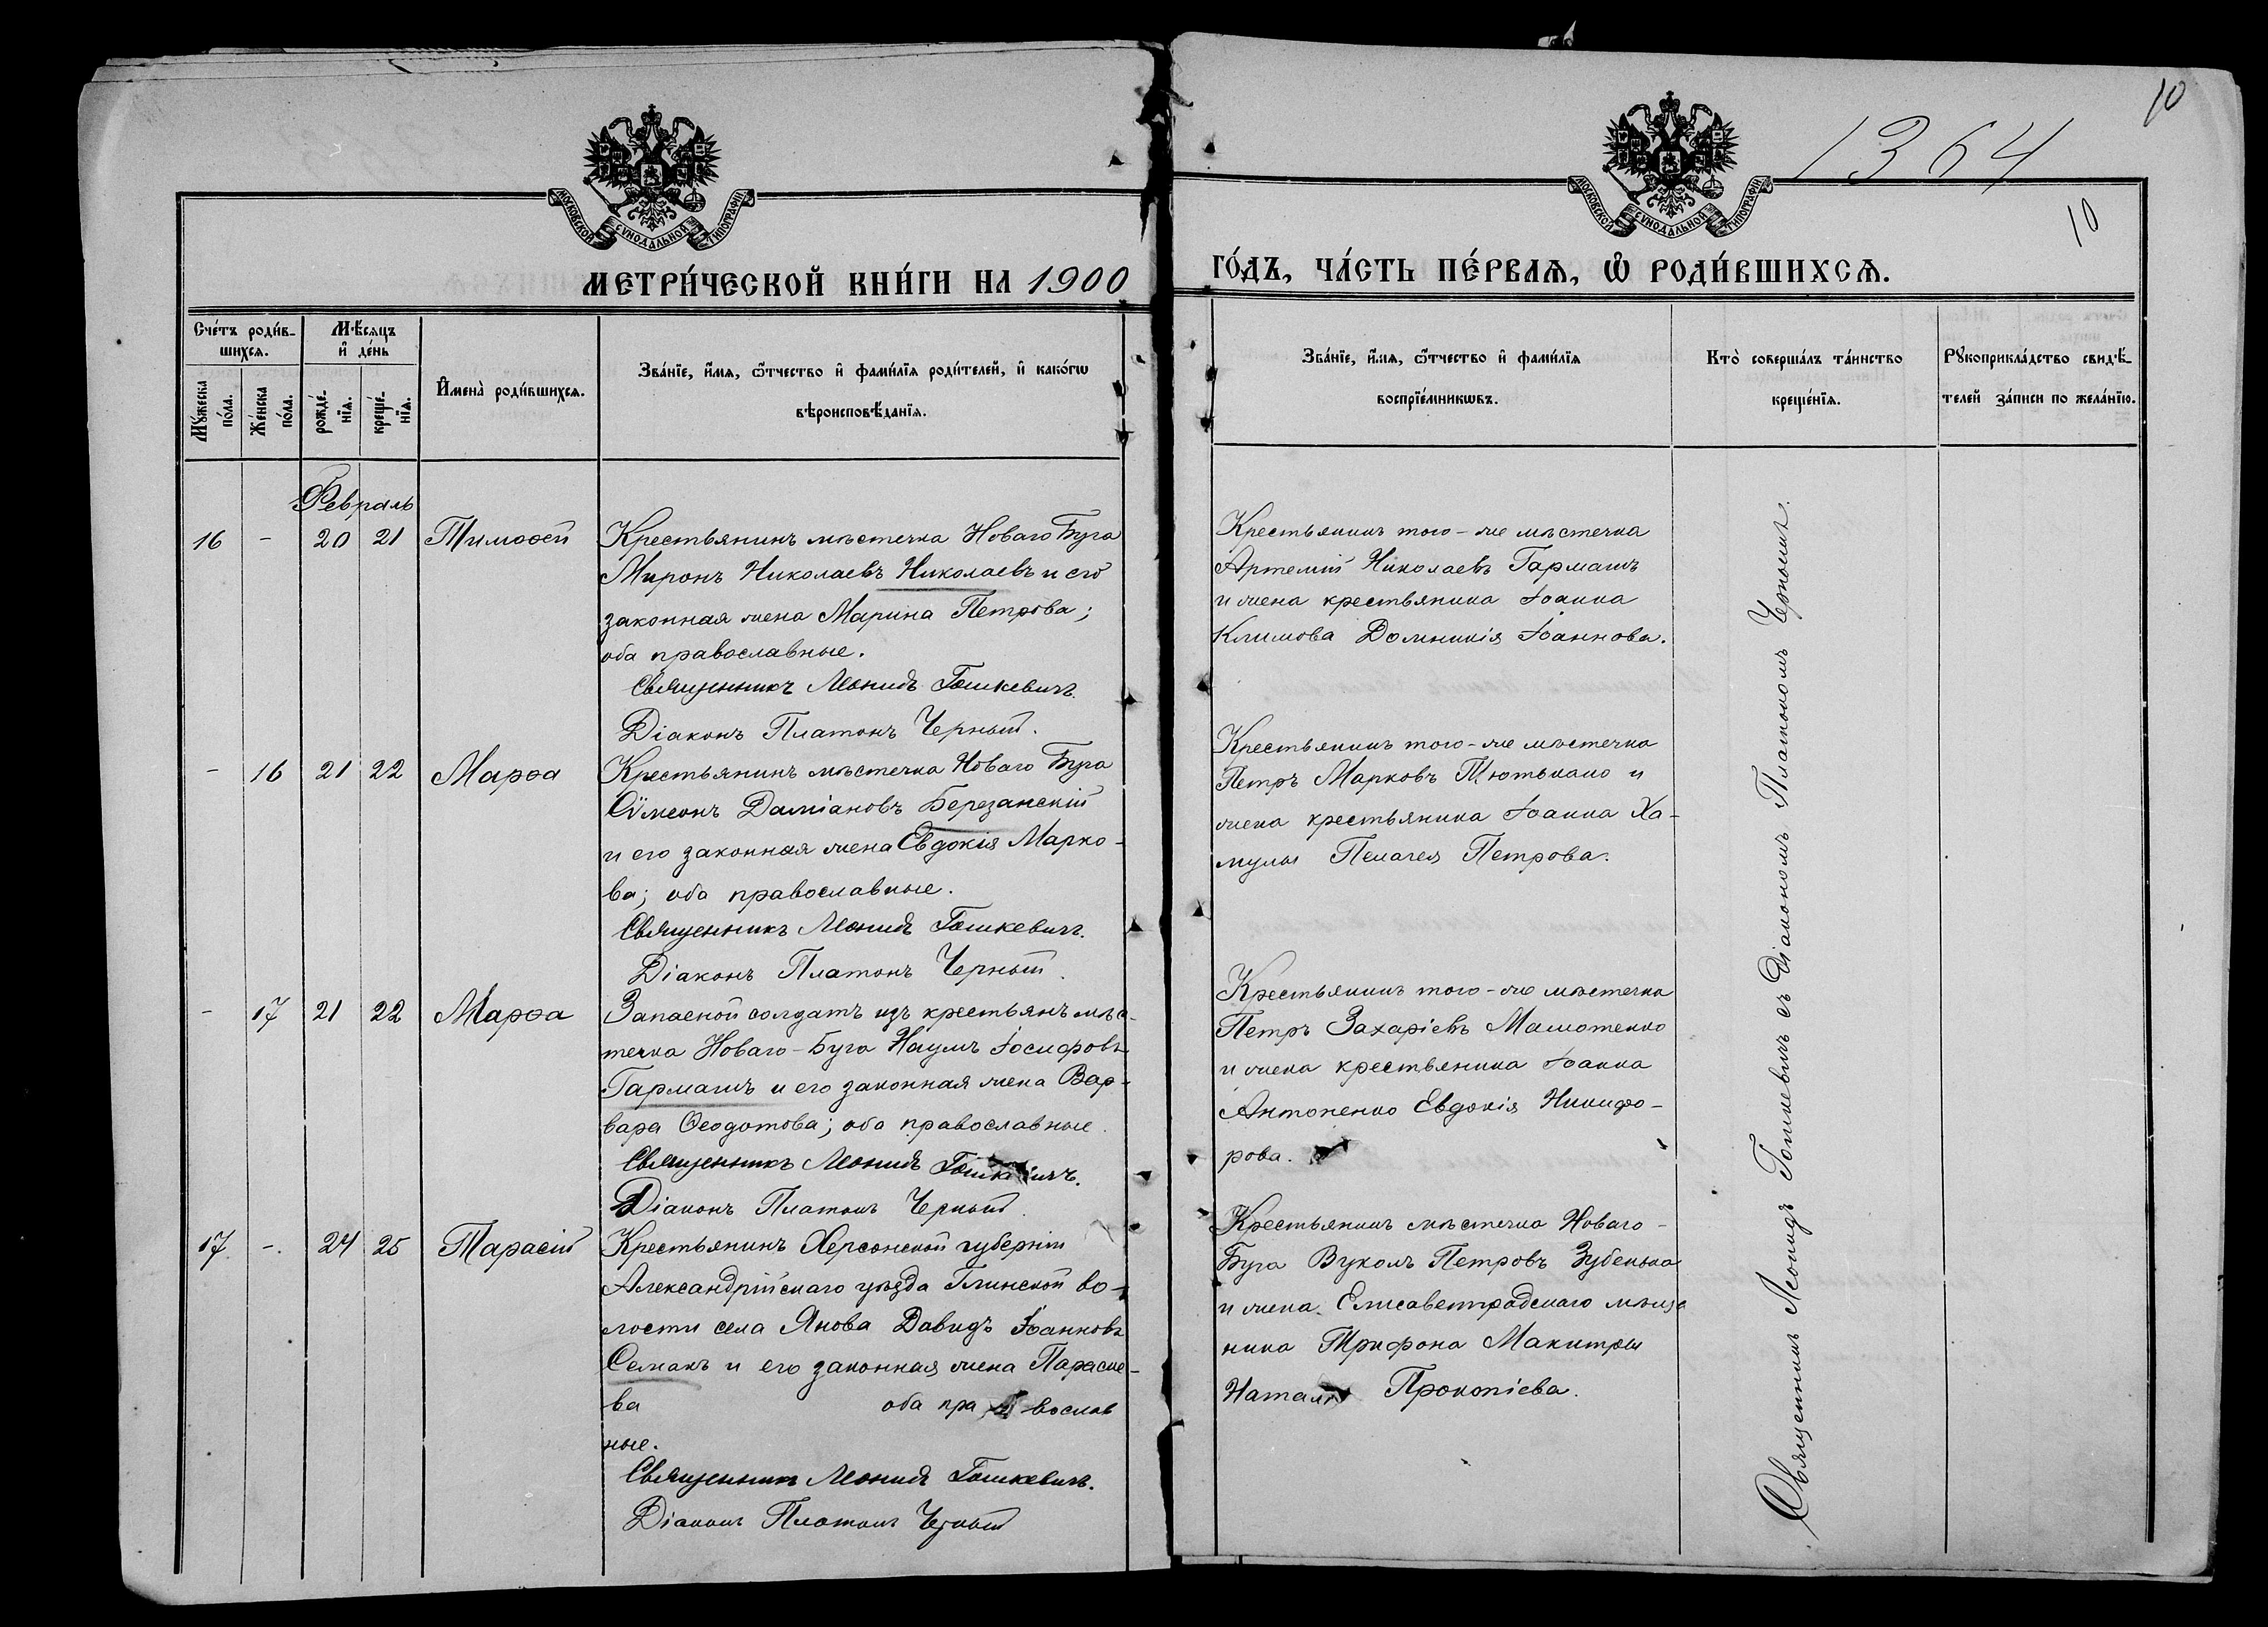 1364
10
10
МОСКОВСКОЙ СѴНОДАЛЬНОЙ ТИПОГРАФІИ
МОСКОВСКОЙ СѴНОДАЛЬНОЙ ТИПОГРАФІИ
МЕТРИ́ЧЕСКОЙ КНИ́ГИ НА 1900 ГО́ДЪ, ЧА́СТЬ ПЕ́РВАѦ, Ѡ҆ РОДИ́ВШИХСѦ.
Сче́тъ роди́в-
шихсѧ.
Мѣ́сѧцъ
и҆ де́нь
Мꙋ́жеска по́ла.
Же́нска по́ла.
рожде́-нїѧ.
креще́-нїѧ.
И҆мена̀ роди́вшихсѧ.
Зва́нїе, и҆́мѧ, ѻ҆́тчество и҆ фами́лїѧ роди́телей, и҆ како́гѡ
вѣроисповѣ́данїѧ.
Зва́нїе, и҆́мѧ, ѻ҆́тчество и҆ фами́лїѧ
воспрїе́мникѡвъ.
Кто̀ соверша́лъ та́инство
креще́нїѧ.
Рꙋкоприкла́дство свидѣ́-
телей за́писи по жела́нїю.
Февраль
16 - 20 21 Тимоѳей
Крестьянинъ мѣстечка Новаго Буга
Миронъ Николаевъ Николаевъ и его
законная жена Марина Петрова;
оба православные.
Священникъ Леонидъ Гошкевичъ.
Діаконъ Платонъ Черный.
Крестьянинъ того-же мѣстечка
Артемій Николаевъ Гармашъ
и жена крестьянина Іоанна
Климова Домникія Іоаннова.
- 16 21 22 Марѳа
Крестьянинъ мѣстечка Новаго Буга
Сѵмеонъ Даміановъ Березанскій
и его законная жена Евдокія Марко-
ва; оба православные.
Священникъ Леонидъ Гошкевичъ.
Діаконъ Платонъ Черный.
Крестьянинъ того-же мѣстечка
Петръ Марковъ Тютькало и
жена крестьянина Іоанна Ха-
мулы Пелагея Петрова.
- 17 21 22 Марѳа
Запасной солдатъ изъ крестьянъ мѣс-
течка Новаго-Буга Наумъ Іосифовъ
Гармашъ и его законная жена Вар-
вара Ѳеодотова; оба православные.
Священникъ Леонидъ Гошкевичъ.
Діаконъ Платонъ Черный.
Крестьянинъ того-же мѣстечка
Петръ Захаріевъ Мамотенко
и жена крестьянина Іоанна
Антоненко Евдокія Никифо-
рова.
17. -. 24 25 Тарасій
Крестьянинъ Херсонской губерніи
Александрійскаго уѣзда Глинской во-
лости села Янова Давидъ Іоанновъ
Семакъ и его законная жена Параске-
ва оба православ
ные.
Священникъ Леонидъ Гошкевичъ.
Діаконъ Платонъ Черный
Крестьянинъ мѣстечка Новаго-
Буга Вуколъ Петровъ Зубенька
и жена Елисаветградскаго мѣща
нина Трифона Макитры
Наталія Прокопіева.
Священникъ Леонидъ Гошкевичъ съ Діакономъ Платономъ Чернымъ.